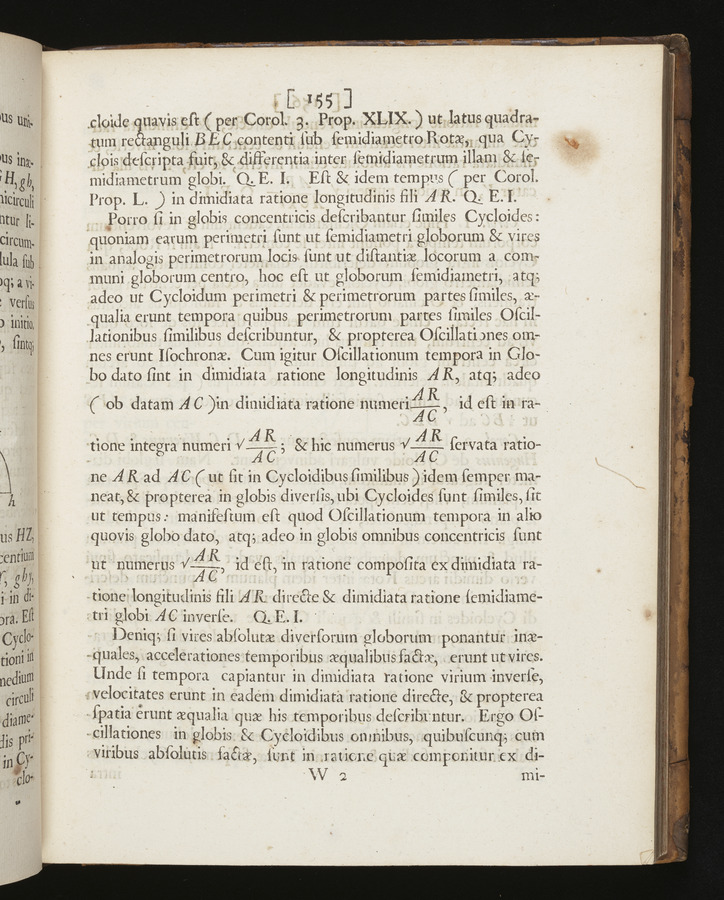 [ 155 ]
cloide quavis eſt ( per Corol. 3. Prop. XLIX. ) ut latus quadra-
tum rectanguli BEC contenti ſub ſemidiametro Rotæ, qua Cy-
clois deſcripta fuit, & differentia inter ſemidiametrum illam & ſe-
midiametrum globi. Q. E. I. Eſt & idem tempus ( per Corol.
Prop. L. ) in dimidiata ratione longitudinis fili AR. Q. E. I.
Porro ſi in globis concentricis deſcribantur ſimiles Cycloides:
quoniam earum perimetri ſunt ut ſemidiametri globorum & vires
in analogis perimetrorum locis ſunt ut diſtantiæ locorum a com-
muni globorum centro, hoc eſt ut globorum ſemidiametri, atq;
adeo ut Cycloidum perimetri & perimetrorum partes ſimiles, æ-
qualia erunt tempora quibus perimetrorum partes ſimiles Oſcil-
lationibus ſimilibus deſcribuntur, & propterea Oſcillationes om-
nes erunt Iſochronæ. Cum igitur Oſcillationum tempora in Glo-
bo dato ſint in dimidiata ratione longitudinis AR, atq; adeo
( ob datam AC ) in dimidiata ratione numeri AR/AC, id eſt in ra-
tione integra numeri √AR/AC; & hic numerus √AR/AC ſervata ratio-
ne AR ad AC ( ut fit in Cycloidibus ſimilibus ) idem ſemper ma-
neat, & propterea in globis diverſis, ubi Cycloides ſunt ſimiles, ſit
ut tempus: manifeſtum eſt quod Oſcillationum tempora in alio
quovis globo dato, atq; adeo in globis omnibus concentricis ſunt
ut numerus √AR/AC, id eſt, in ratione compoſita ex dimidiata ra-
tione longitudinis fili AR directe & dimidiata ratione ſemidiame-
tri globi AC inverſe. Q. E. I.
Deniq; ſi vires abſolutæ diverſorum globorum ponantur inæ-
quales, accelerationes temporibus æqualibus factæ, erunt ut vires.
Unde ſi tempora capiantur in dimidiata ratione virium inverſe,
velocitates erunt in eadem dimidiata ratione directe, & propterea
ſpatia erunt æqualia quæ his temporibus deſcribuntur. Ergo Oſ-
cillationes in globis & Cycloidibus omnibus, quibuſcunq; cum
viribus abſolutis factæ, ſunt in ratione quæ componitur ex di-
W 2 mi-